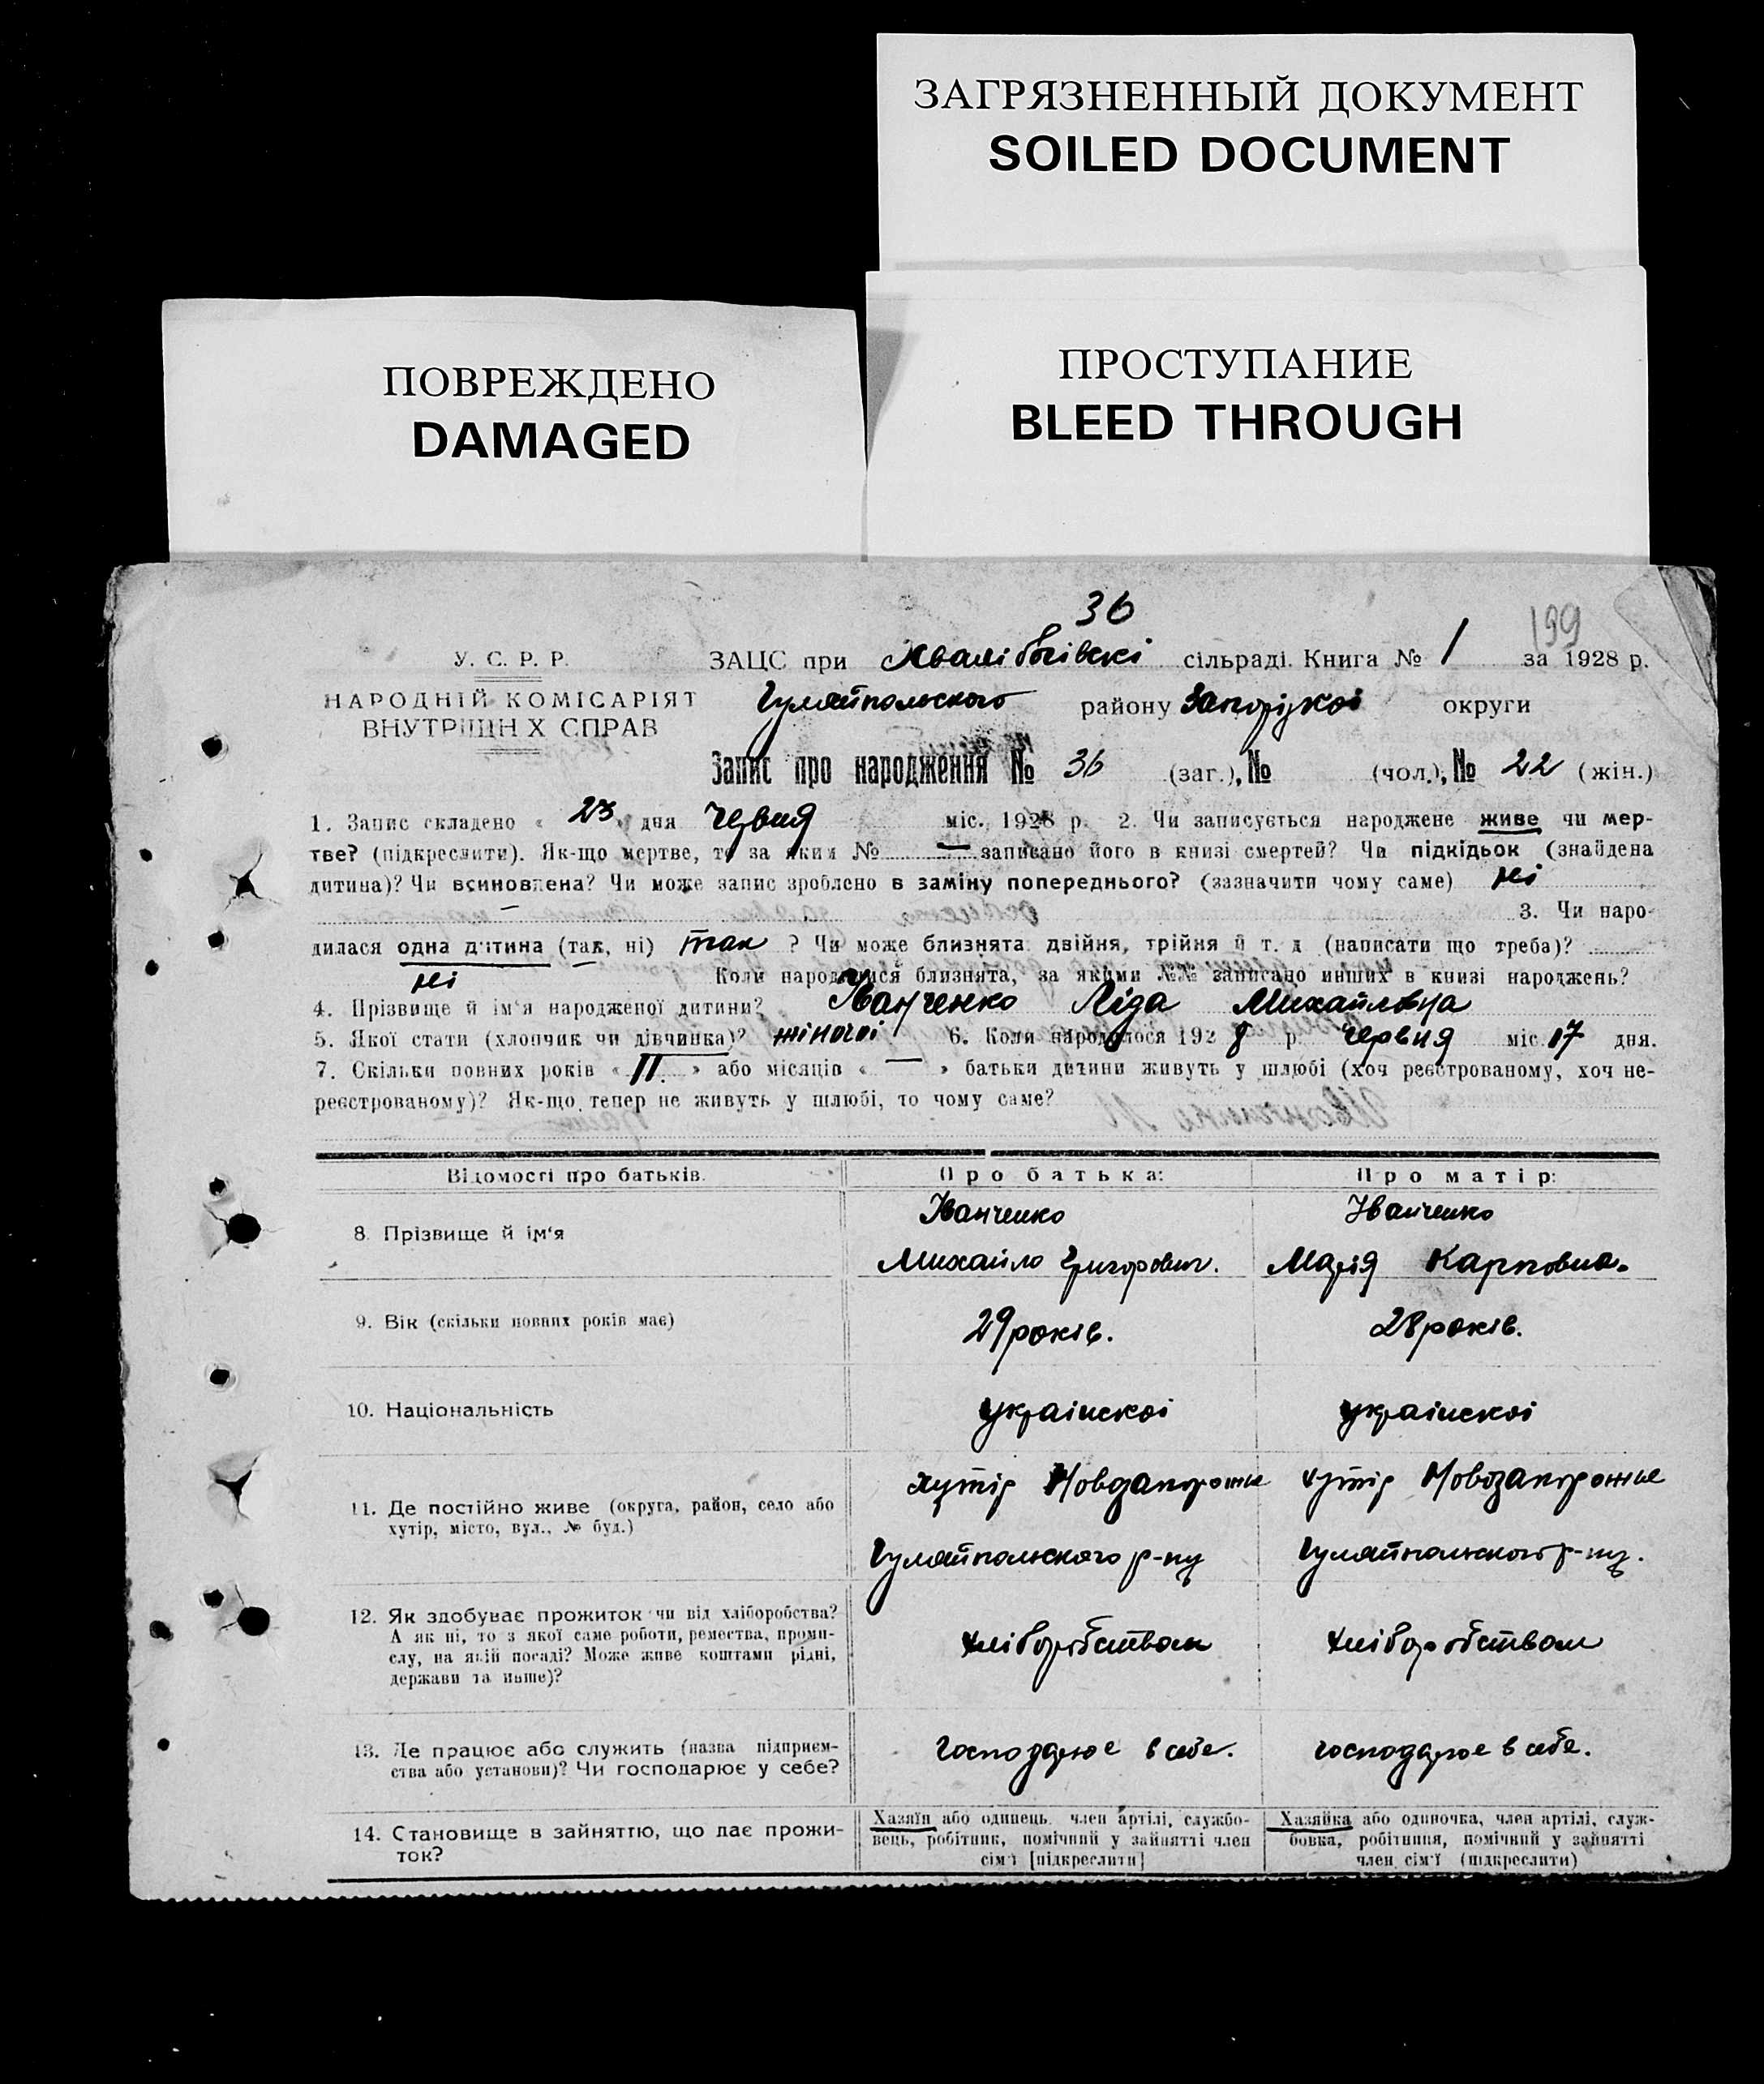 ЗАГРЯЗНЕННЫЙ ДОКУМЕНТ
SOILED DOCUMENT
ПОВРЕЖДЕНО
DAMAGED
ПРОСТУПАНИЕ
BLEED THROUGH
36
199
У. С. Р. Р.
НАРОДНІЙ КОМІСАРІЯТ
ВНУТРІШНІХ СПРАВ
ЗАЦС при сільраді. Книга № 1 за 1928 р.
Гуляйпольского району Запоріжкої округи
Запис про народження № 36 (заг.), № (чол.), № 22 (жін.)
1. Запис складено « 23 » дня червня міс. 1928 р. 2. Чи записується народжене живе чи мер-
тве? (підкреслити). Як-що мертве, то за яким № — записано його в книзі смертей? Чи підкідьок (знайдена
дитина)? Чи всиновлена? Чи може запис зроблено в заміну попереднього? (зазначити чому саме) ні
— 3. Чи наро-
дилася одна дитина (так, ні) так ? Чи може близнята двійня, трійня й т. д (написати що треба)?
ні Коли народилися близнята, за якими №№ записано инших в книзі народжень?
4. Прізвище й ім'я народженої дитини? Іванченко Ліда Михайловна
5. Якої стати (хлопчик чи дівчинка)? жіночої 6. Коли народилося 1928 р. червня міс. 17 дня.
7. Скільки повних років « 11. » або місяців « — » батьки дитини живуть у шлюбі (хоч реєстрованому, хоч не-
реєстрованому)? Як-що тепер не живуть у шлюбі, то чому саме?
Відомості про батьків. Про батька: Про матір:
8. Прізвище й ім'я Іванченко Михайло Григорович. Іванченко Марія Карповна.
9. Вік (скільки повних років має) 29 років. 28 років.
10. Національність украінскоі украінскоі
11. Де постійно живе (округа, район, село або
хутір, місто, вул., № буд.)
хутір Новозапорожье хутір Новозапорожье
Гуляйпольского р-ну Гуляйпольского р-ну.
12. Як здобуває прожиток чи від хліборобства?
А як ні, то з якої саме роботи, ремества, проми-
слу, на якій посаді? Може живе коштами рідні,
держави та инше)?
хліборобством хліборобством
13. Де працює або служить (назва підприєм-
ства або установи)? Чи господарює у себе?
господарює в себе. господарює в себе.
14. Становище в зайняттю, що дає прожи-
ток?
Хазяїн або одинець, член артілі, службо-
вець, робітник, помічний у зайнятті член
сім'ї [підкреслити]
Хазяйка або одиночка, член артілі, служ-
бовка, робітниця, помічний у зайнятті
член сім'ї (підкреслити)